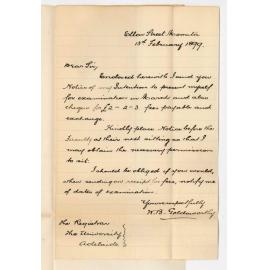 Elton Street Norwalla
13th February 1899
Dear Sir,
Enclosed herewith I send you
Notice of my Intention to present myself
for examination in March and also
cheque for £2-2-3 fees payable and
exchange.
Kindly place Notice before the
Faculty at their next sitting so that I
may obtain the necessary permission
to sit.
I should be obliged if you would,
when sending me receipt for fees, notify me
of dates of examination.
Yours respectfully
W. B. Goldsworthy
The Registrar
The University
Adelaide